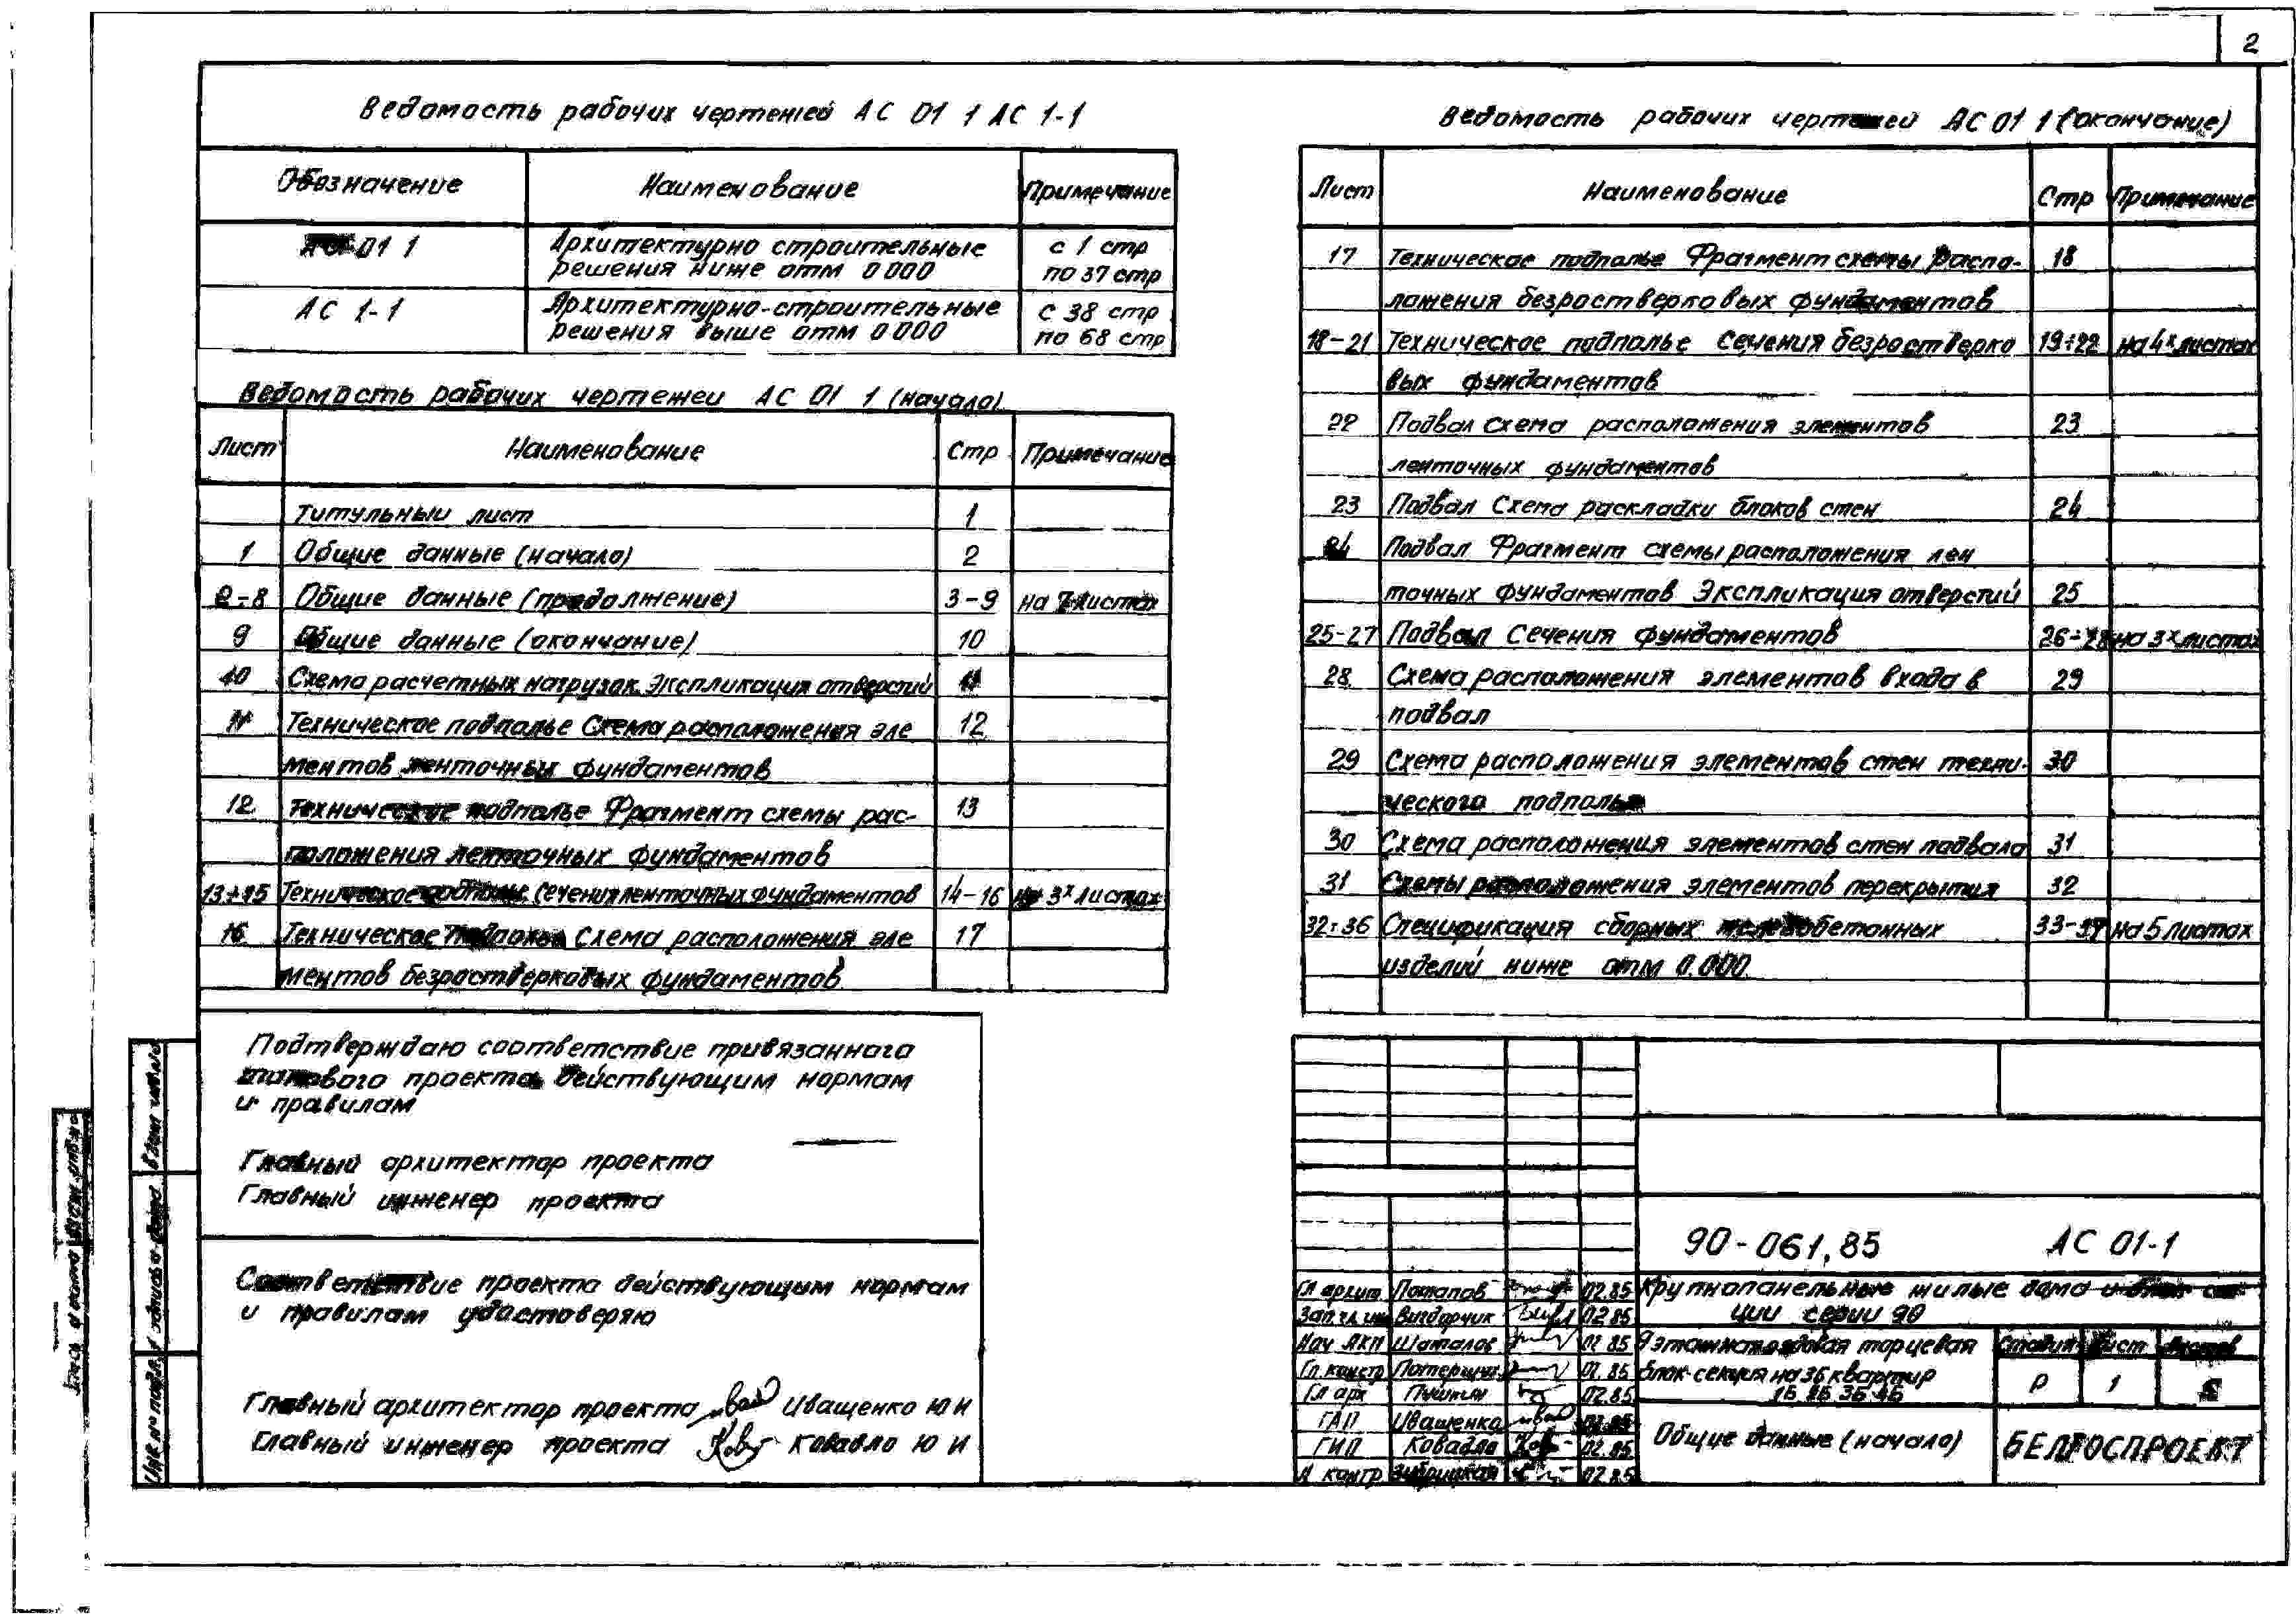 2
Ведомость рабочих чертежей АС 01 1 АС 1-1
Обозначение Наименование Примечание
АС 01 1 Архитектурно строительные с 1 стр
решения ниже отм 0 000 по 37 стр
АС 1-1 Архитектурно-строительные с 38 стр
решения выше отм 0 000 по 68 стр
Ведомость рабочих чертежей АС 01 1 (начало)
Лист Наименование Стр Примечание
Титульный лист 1
1 Общие данные (начало) 2
2-8 Общие данные (продолжение) 3-9 на 7 листах
9 Общие данные (окончание) 10
10 Схема расчетных нагрузок. Экспликация отверстий 11
11 Техническое подполье Схема расположения эле 12
ментов ленточных фундаментов
12 Техническое подполье Фрагмент схемы рас- 13
положения ленточных фундаментов
13÷15 Техническое подполье. Сечения ленточных фундаментов 14-16 на 3х листах
16 Техническое подполье Схема расположения эле 17
ментов безростверковых фундаментов
Ведомость рабочих чертежей АС 01 1 (окончание)
Лист Наименование Стр Примечание
17 Техническое подполье Фрагмент схемы распо- 18
ложения безростверковых фундаментов
18-21 Техническое подполье Сечения безростверко 19÷22 на 4х листах
вых фундаментов
22 Подвал Схема расположения элементов 23
ленточных фундаментов
23 Подвал Схема раскладки блоков стен 24
24 Подвал Фрагмент схемы расположения лен
точных фундаментов Экспликация отверстий 25
25-27 Подвал Сечения фундаментов 26-28 на 3х листах
28 Схема расположения элементов входа в 29
подвал
29 Схема расположения элементов стен техни- 30
ческого подполья
30 Схема расположения элементов стен подвала 31
31 Схемы расположения элементов перекрытия 32
32÷36 Спецификация сборных железобетонных 33-37 на 5 листах
изделий ниже отм 0.000
Подтверждаю соответствие привязанного
типового проекта действующим нормам
и правилам
Главный архитектор проекта
Главный инженер проекта
Соответствие проекта действующим нормам
и правилам удостоверяю
Главный архитектор проекта Иващенко Ю И
Главный инженер проекта Ковадло Ю И
Взам инв №
Подпись и дата
Инв № подл.
90-061,85 АС 01-1
Гл архит Потапов 02.85 Крупнопанельные жилые дома и блок сек
02.85 ции серии 90
Нач АКП Шаталов 02 85
Гл. констр 02.85 блок-секция на 36 квартир
Гл арх 02.85 1Б 2Б 3Б 4Б
Стадия Лист Листов
Р 1
ГАП Иващенко 02.85
ГИП Ковадло 02.85 Общие данные (начало)
Н контр 02.85
БЕЛГОСПРОЕКТ